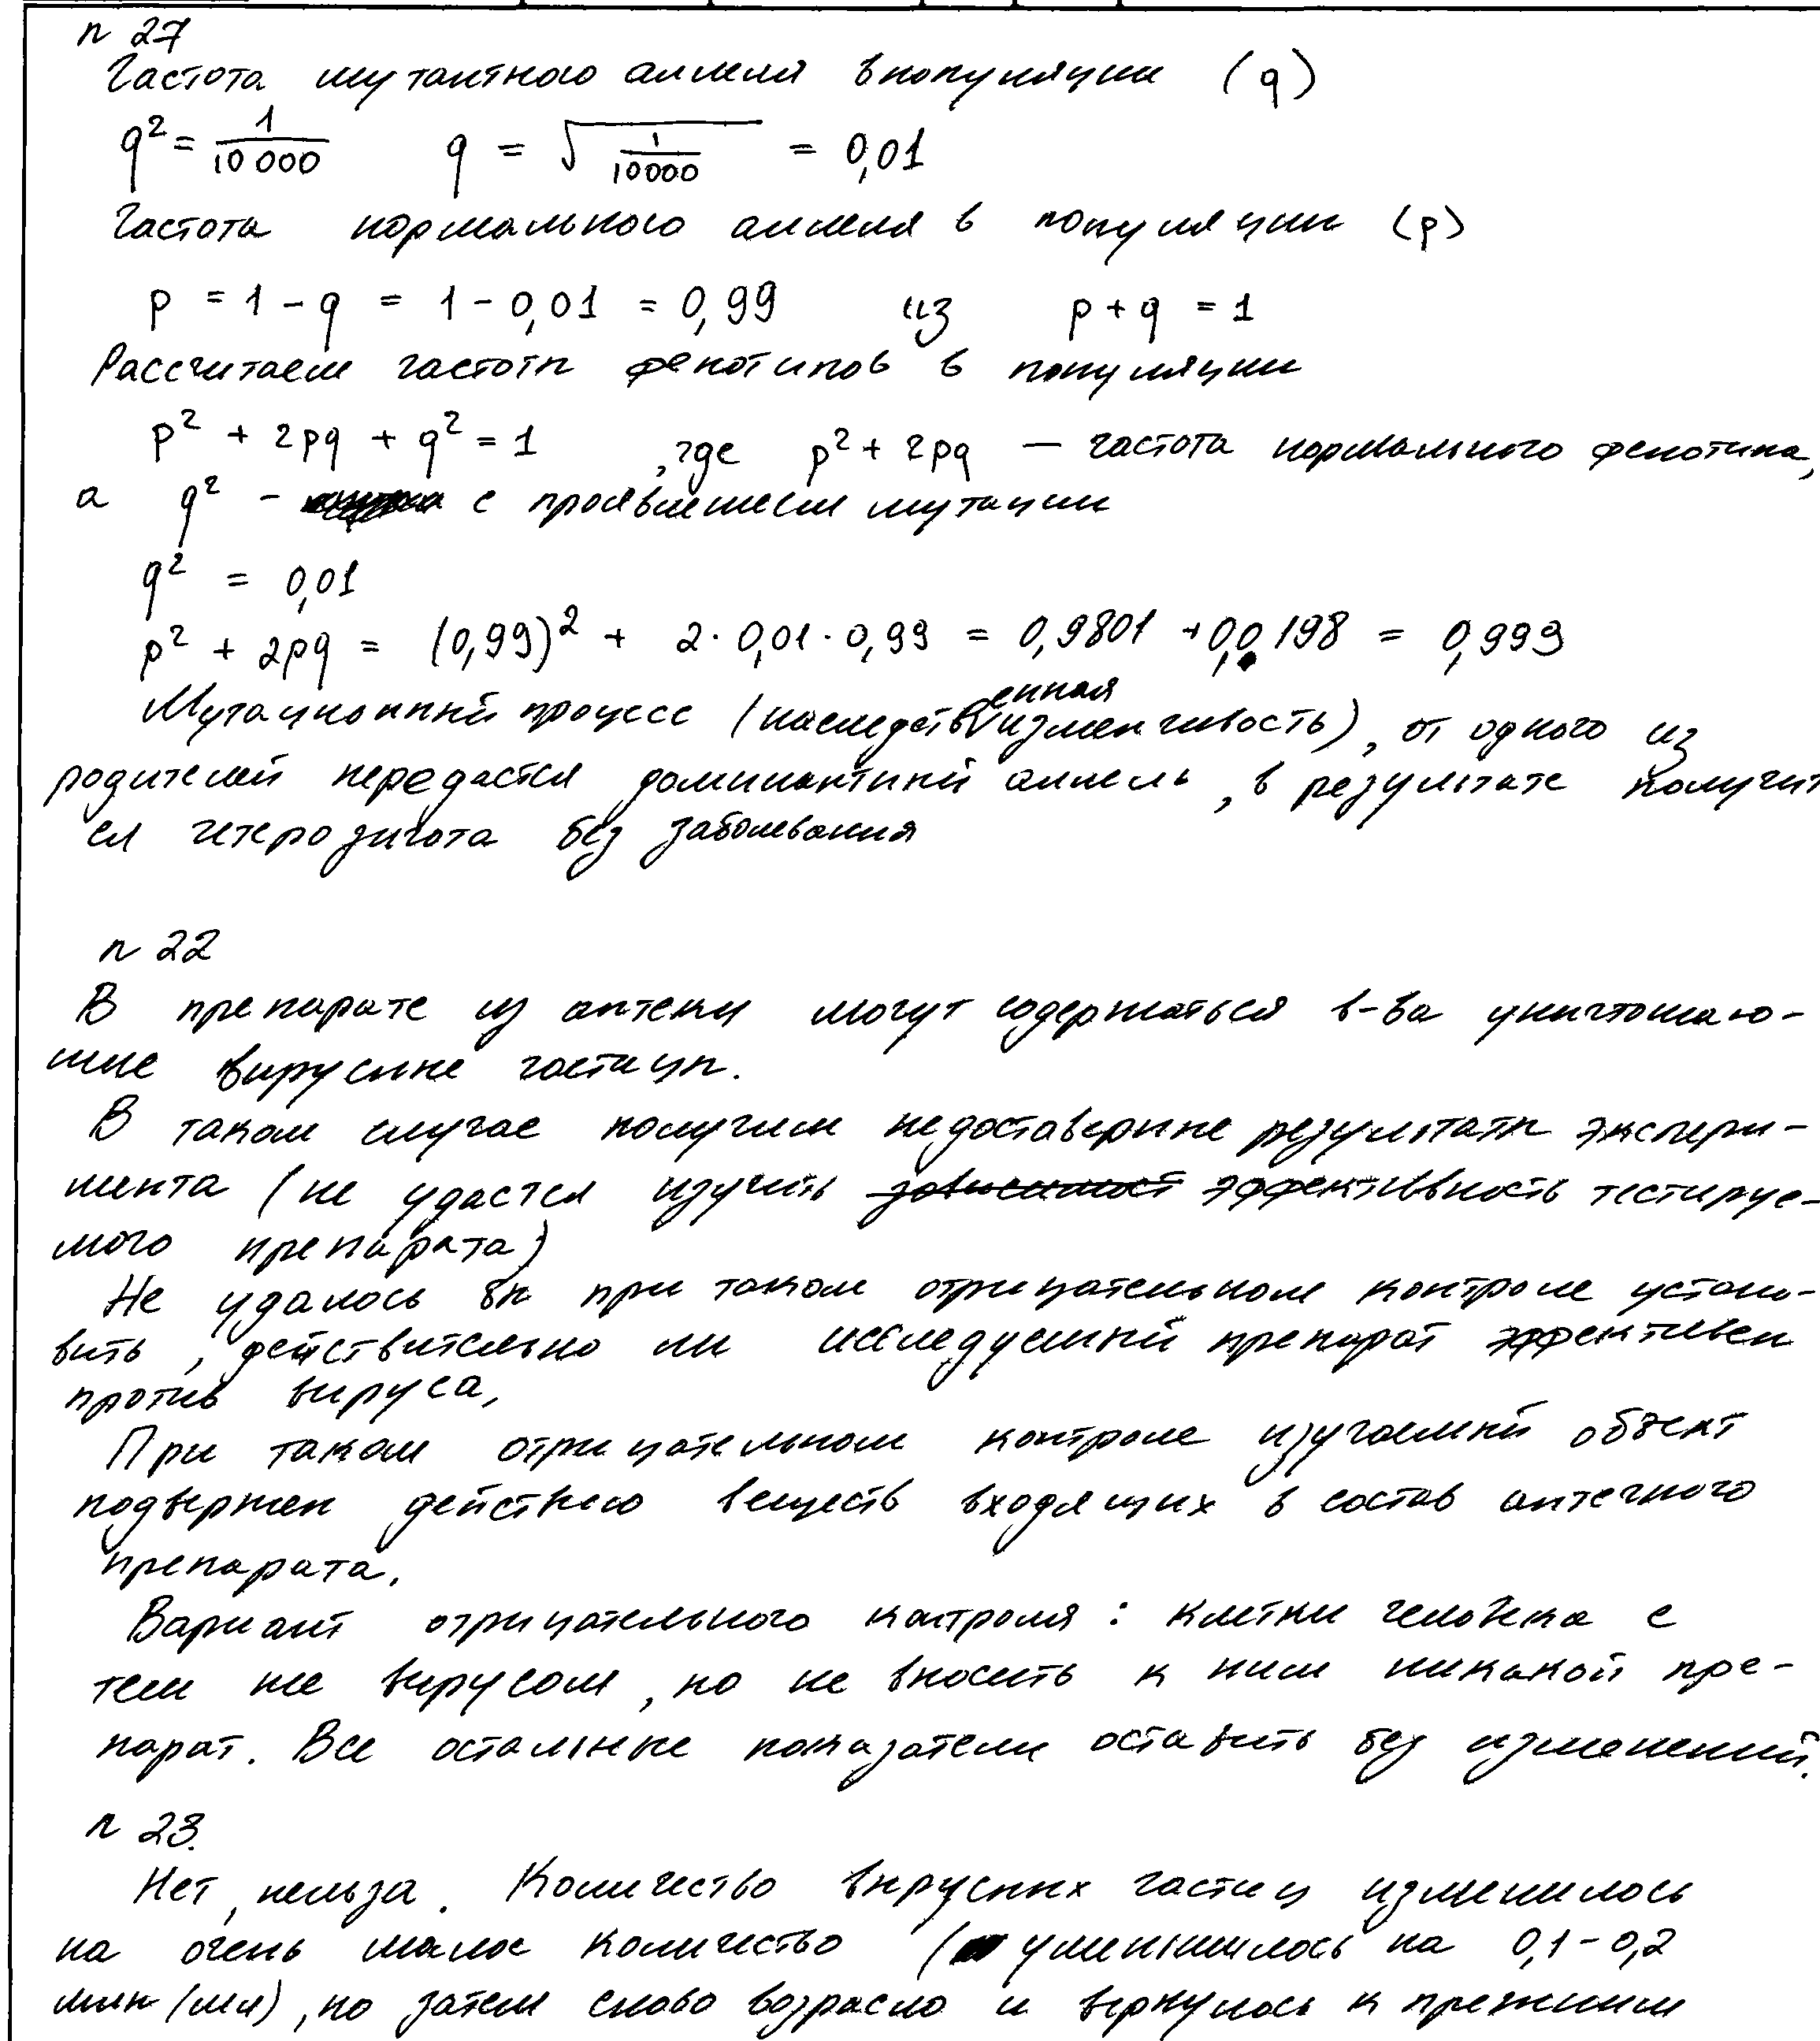 n 27
Частота мутантного аллеля в популяции (q)
q² = 1/10 000 q = √(1/10000) = 0,01
Частота нормального аллеля в популяции (p)
p = 1 - q = 1 - 0,01 = 0,99 из p + q = 1
Рассчитаем частоты фенотипов в популяции
p² + 2pq + q² = 1 , где p² + 2pq — частота нормального фенотипа,
а q² - с проявлением мутации
q² = 0,01
p² + 2pq = (0,99)² + 2 · 0,01 · 0,99 = 0,9801 + 0,0198 = 0,999
Мутационный процесс (наследственная изменчивость), от одного из
родителей передастся доминантный аллель, в результате получит
ся гетерозигота без заболевания
n 22
В препарате из аптеки могут содержаться в-ва уничтожаю-
щие вирусные частицы.
В таком случае получим недостоверные результаты экспери-
мента (не удастся изучить зависимост эффективность тестируе-
мого препарата)
Не удалось бы при таком отрицательном контроле устано-
вить, действительно ли исследуемый препарат эффективен
против вируса,
При таком отрицательном контроле изучаемый объект
подвержен действию веществ входящих в состав аптечного
препарата.
Вариант отрицательного контроля: клетки человека с
тем же вирусом, но не вносить к ним никакой пре-
парат. Все остальные показатели оставить без изменений.
n 23.
Нет, нельзя. Количество вирусных частиц изменилось
на очень малое количество (уменьшилось на 0,1 - 0,2
млн/мл), но затем снова возрасло и вернулось к прежним